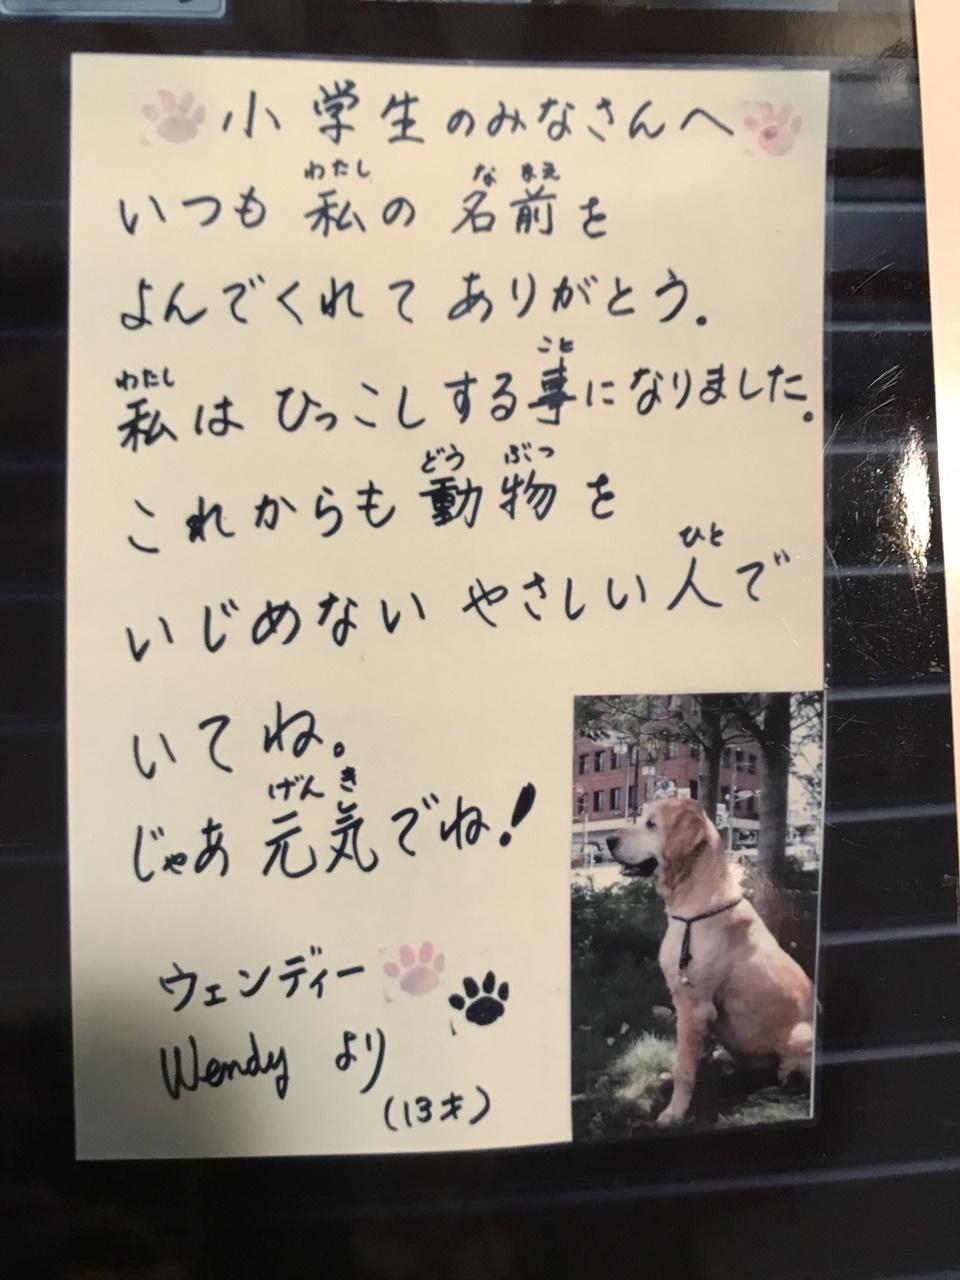 小学生のみなさんへ
わたし な まえ
いつも 私の 名前を
よんでくれて ありがとう。
わたし こと
私は ひっこしする事になりました。
どう ぶつ
これからも 動物を
ひと
いじめない やさしい人で
いてね。
げん き
じゃあ 元気でね!
ウェンディー
Wendy より
(13才)